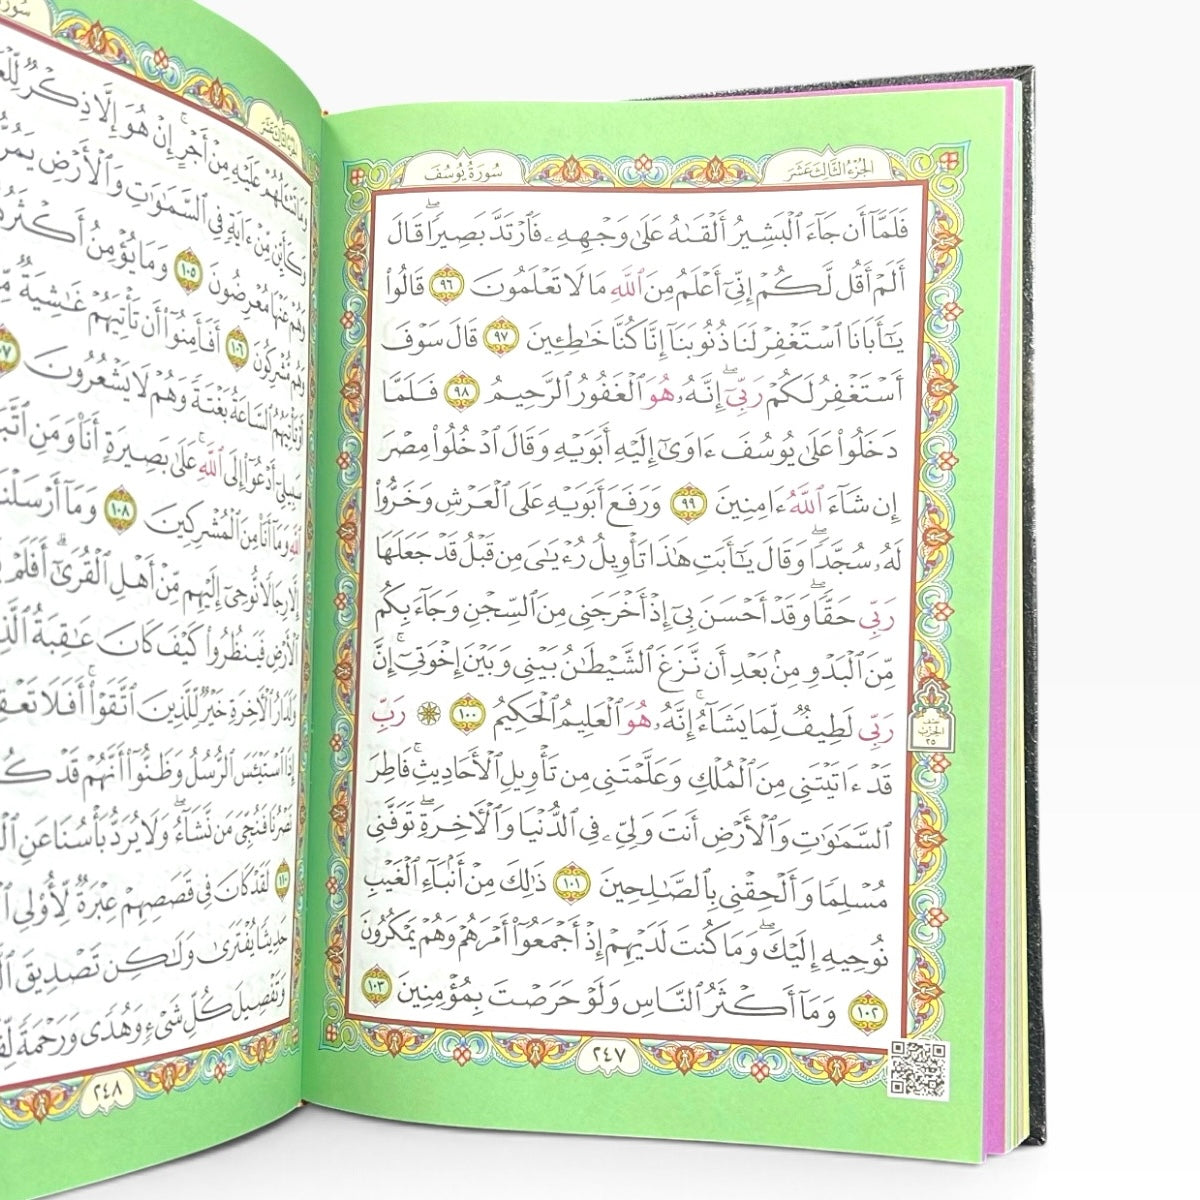 سُورَةُ يُوسُفَ
الجُزْءُ الثَّالِثَ عَشَرَ
فَلَمَّآ أَن جَآءَ ٱلْبَشِيرُ أَلْقَىٰهُ عَلَىٰ وَجْهِهِۦ فَٱرْتَدَّ بَصِيرًاۖ قَالَ
أَلَمْ أَقُل لَّكُمْ إِنِّىٓ أَعْلَمُ مِنَ ٱللَّهِ مَا لَا تَعْلَمُونَ ٩٦ قَالُوا۟
يَـٰٓأَبَانَا ٱسْتَغْفِرْ لَنَا ذُنُوبَنَآ إِنَّا كُنَّا خَـٰطِـِٔينَ ٩٧ قَالَ سَوْفَ
أَسْتَغْفِرُ لَكُمْ رَبِّىٓۖ إِنَّهُۥ هُوَ ٱلْغَفُورُ ٱلرَّحِيمُ ٩٨ فَلَمَّا
دَخَلُوا۟ عَلَىٰ يُوسُفَ ءَاوَىٰٓ إِلَيْهِ أَبَوَيْهِ وَقَالَ ٱدْخُلُوا۟ مِصْرَ
إِن شَآءَ ٱللَّهُ ءَامِنِينَ ٩٩ وَرَفَعَ أَبَوَيْهِ عَلَى ٱلْعَرْشِ وَخَرُّوا۟
لَهُۥ سُجَّدًاۖ وَقَالَ يَـٰٓأَبَتِ هَـٰذَا تَأْوِيلُ رُءْيَـٰىَ مِن قَبْلُ قَدْ جَعَلَهَا
رَبِّى حَقًّاۖ وَقَدْ أَحْسَنَ بِىٓ إِذْ أَخْرَجَنِى مِنَ ٱلسِّجْنِ وَجَآءَ بِكُم
مِّنَ ٱلْبَدْوِ مِنۢ بَعْدِ أَن نَّزَغَ ٱلشَّيْطَـٰنُ بَيْنِى وَبَيْنَ إِخْوَتِىٓۚ إِنَّ
رَبِّى لَطِيفٌ لِّمَا يَشَآءُۚ إِنَّهُۥ هُوَ ٱلْعَلِيمُ ٱلْحَكِيمُ ١٠٠ ۞ رَبِّ
قَدْ ءَاتَيْتَنِى مِنَ ٱلْمُلْكِ وَعَلَّمْتَنِى مِن تَأْوِيلِ ٱلْأَحَادِيثِۚ فَاطِرَ
ٱلسَّمَـٰوَٰتِ وَٱلْأَرْضِ أَنتَ وَلِىِّۦ فِى ٱلدُّنْيَا وَٱلْـَٔاخِرَةِۖ تَوَفَّنِى
مُسْلِمًا وَأَلْحِقْنِى بِٱلصَّـٰلِحِينَ ١٠١ ذَٰلِكَ مِنْ أَنۢبَآءِ ٱلْغَيْبِ
نُوحِيهِ إِلَيْكَۖ وَمَا كُنتَ لَدَيْهِمْ إِذْ أَجْمَعُوٓا۟ أَمْرَهُمْ وَهُمْ يَمْكُرُونَ
١٠٢ وَمَآ أَكْثَرُ ٱلنَّاسِ وَلَوْ حَرَصْتَ بِمُؤْمِنِينَ ١٠٣
نصف
الحزب
٢٥
٢٤٧
عَلَيْهِ مِنْ أَجْرٍۚ إِنْ هُوَ إِلَّا ذِكْرٌ
وَكَأَيِّن مِّنْ ءَايَةٍ فِى ٱلسَّمَـٰوَٰتِ وَٱلْأَرْضِ
وَهُمْ عَنْهَا مُعْرِضُونَ ١٠٥ وَمَا يُؤْمِنُ
وَهُم مُّشْرِكُونَ ١٠٦ أَفَأَمِنُوٓا۟ أَن تَأْتِيَهُمْ غَـٰشِيَةٌ
ٱلسَّاعَةُ بَغْتَةً وَهُمْ لَا يَشْعُرُونَ
سَبِيلِىٓ أَدْعُوٓا۟ إِلَى ٱللَّهِۚ عَلَىٰ بَصِيرَةٍ أَنَا۠ وَمَنِ
ٱللَّهِ وَمَآ أَنَا۠ مِنَ ٱلْمُشْرِكِينَ ١٠٨ وَمَآ
إِلَّا رِجَالًا نُّوحِىٓ إِلَيْهِم مِّنْ أَهْلِ ٱلْقُرَىٰٓۗ أَفَلَمْ
ٱلْأَرْضِ فَيَنظُرُوا۟ كَيْفَ كَانَ عَـٰقِبَةُ
وَلَدَارُ ٱلْـَٔاخِرَةِ خَيْرٌ لِّلَّذِينَ ٱتَّقَوْا۟ۚ أَفَلَا
إِذَا ٱسْتَيْـَٔسَ ٱلرُّسُلُ وَظَنُّوٓا۟ أَنَّهُمْ قَدْ
نَصْرُنَا فَنُجِّىَ مَن نَّشَآءُۖ وَلَا يُرَدُّ بَأْسُنَا عَنِ
١١٠ لَقَدْ كَانَ فِى قَصَصِهِمْ عِبْرَةٌ لِّأُو۟لِى
حَدِيثًا يُفْتَرَىٰ وَلَـٰكِن تَصْدِيقَ
وَتَفْصِيلَ كُلِّ شَىْءٍ وَهُدًى وَرَحْمَةً
٢٤٨